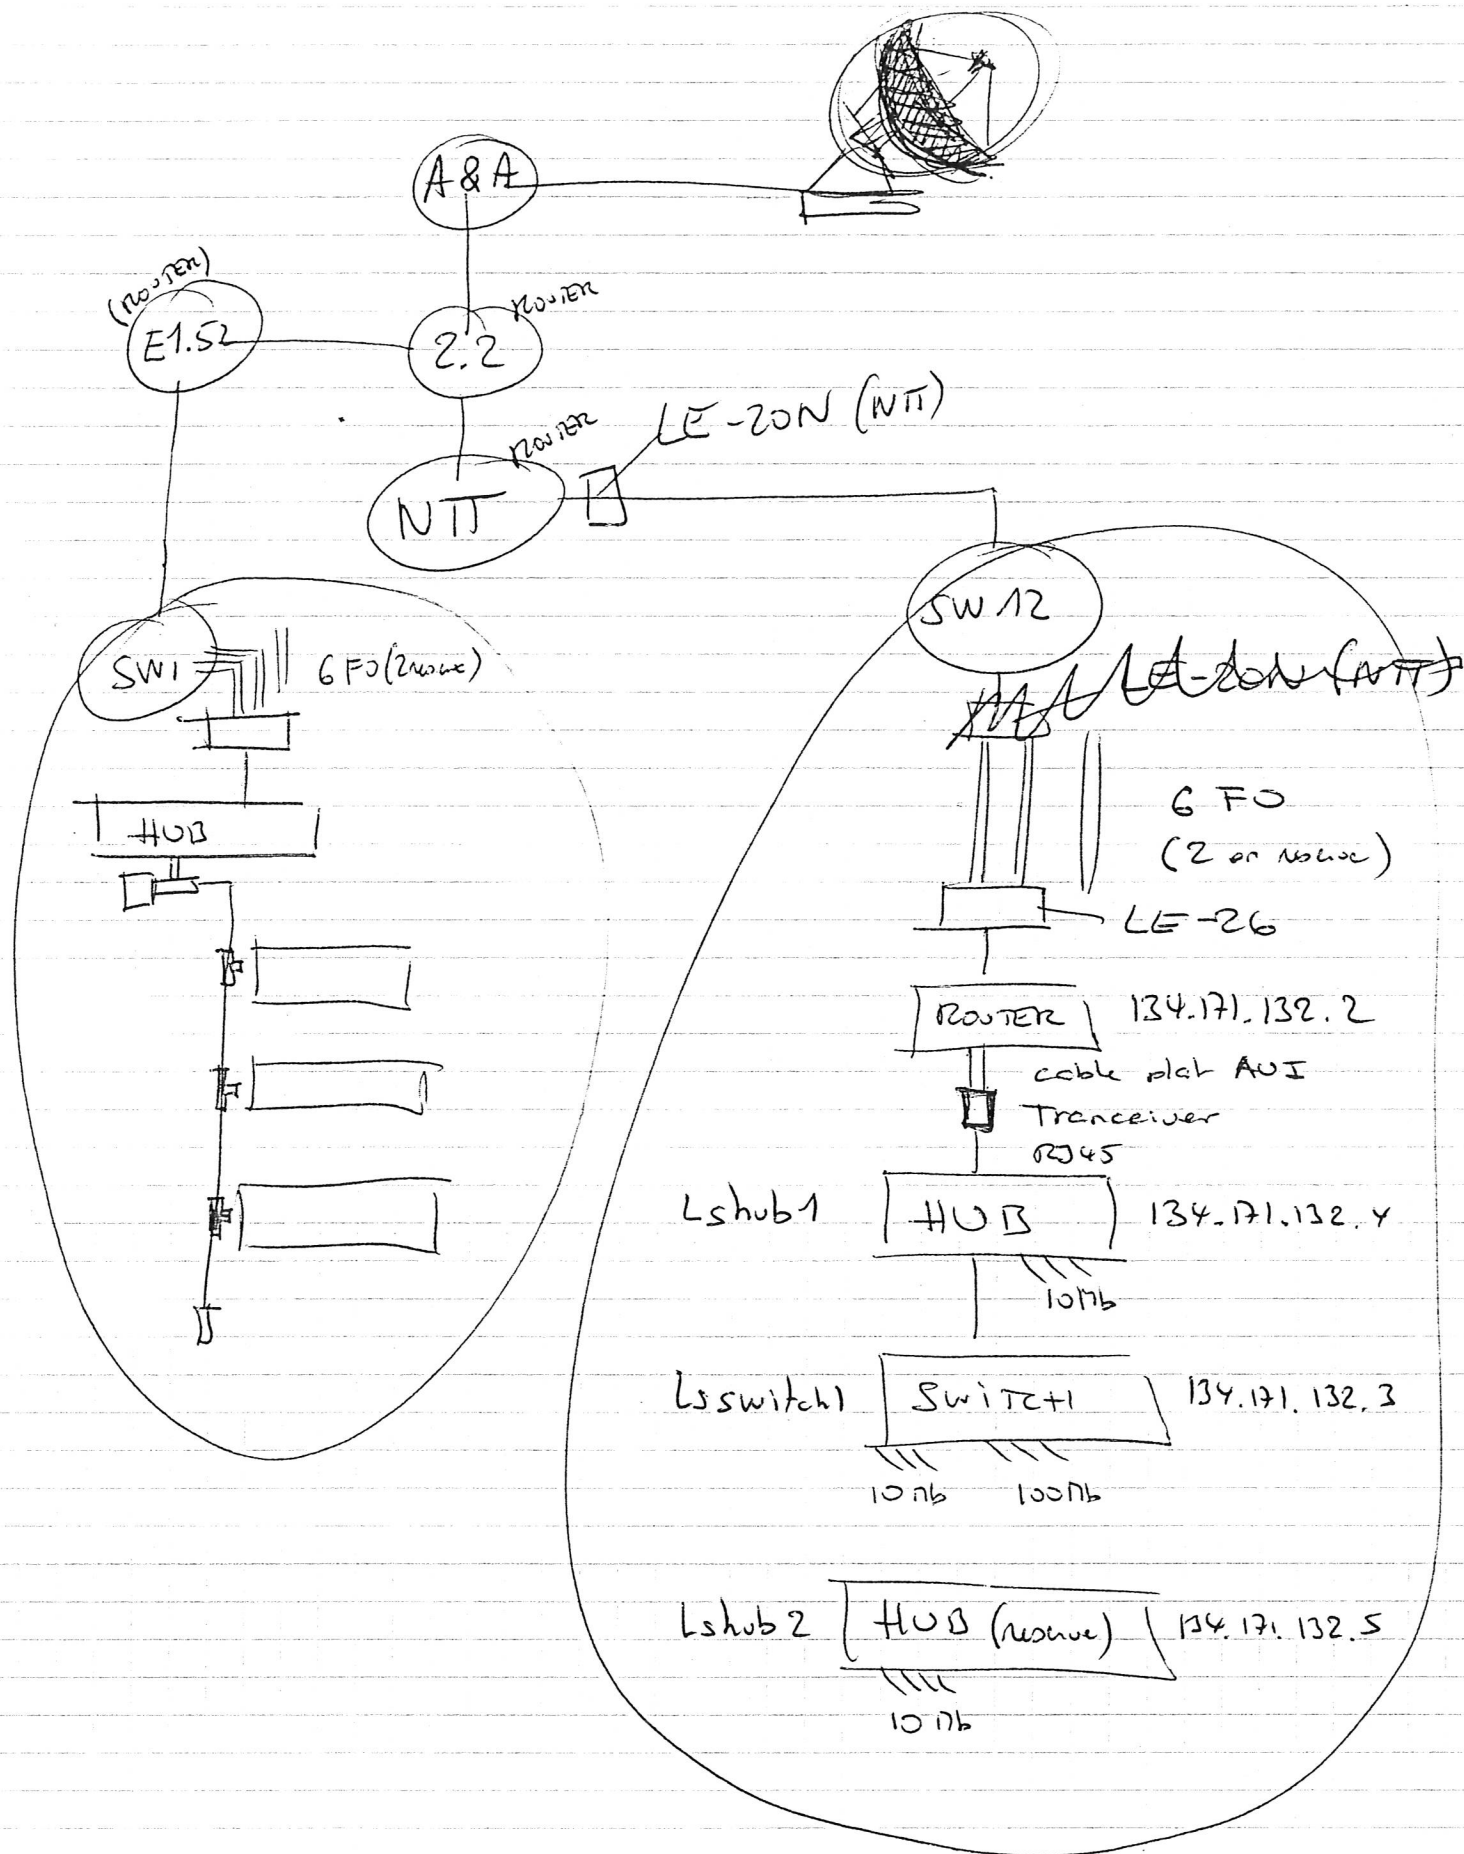 A & A
(ROUTER)
E1.52
ROUTER
2.2
ROUTER
NTT
LE-20N (NTT)
SW1
6 FO (2 reserve)
HUB
SW 12
LE-20N (NTT)
6 FO
(2 en reserve)
LE-26
ROUTER
134.171.132.2
cable plat AUI
Tranceiver
RJ45
Lshub1
HUB
134.171.132.4
10Mb
Lsswitch1
SWITCH
134.171.132.3
10Mb
100Mb
Lshub2
HUB (reserve)
134.171.132.5
10Mb